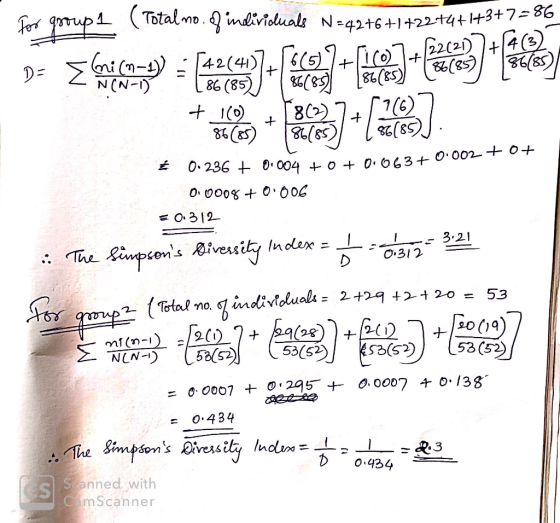 For group 1 (Total no. of individuals N = 42+6+1+22+4+1+3+7 = 86
D = Σ (ni (n-1) / N(N-1)) = [42(41) / 86(85)] + [6(5) / 86(85)] + [1(0) / 86(85)] + [22(21) / 86(85)] + [4(3) / 86(85)]
+ 1(0) / 86(85) + [3(2) / 86(85)] + [7(6) / 86(85)].
= 0.236 + 0.004 + 0 + 0.063 + 0.002 + 0 +
0.0008 + 0.006
= 0.312
∴ The Simpson's Diversity Index = 1/D = 1/0.312 = 3.21
For group 2 (Total no. of individuals = 2+29+2+20 = 53
Σ ni(n-1) / N(N-1) = [2(1) / 53(52)] + [29(28) / 53(52)] + [2(1) / 53(52)] + [20(19) / 53(52)]
= 0.0007 + 0.295 + 0.0007 + 0.138
= 0.434
∴ The Simpson's Diversity Index = 1/D = 1/0.434 = 2.3
CS Scanned with
CamScanner